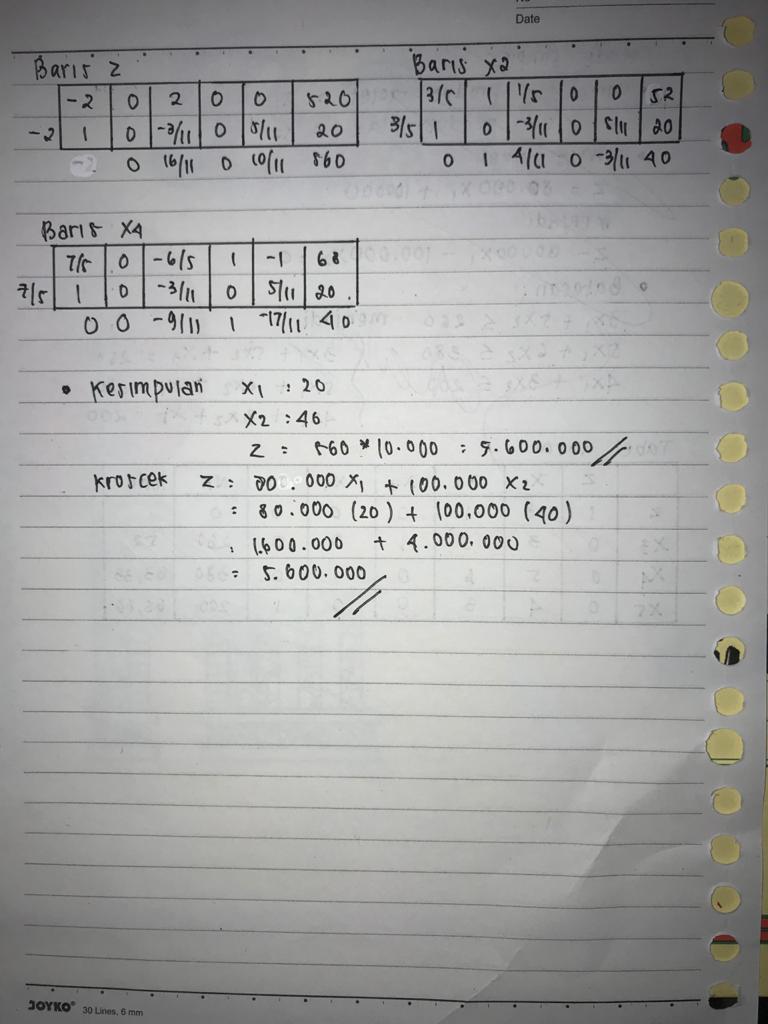 Date
Baris Z
-2 0 2 0 0 520
-2 1 0 -3/11 0 5/11 20
0 16/11 0 10/11 560
Baris X2
3/5 1 1/5 0 0 52
3/5 1 0 -3/11 0 5/11 20
0 1 4/11 0 -3/11 40
Baris X4
7/5 0 -6/5 1 -1 68
7/5 1 0 -3/11 0 5/11 20.
0 0 -9/11 1 -17/11 40
• Kesimpulan X1 : 20
X2 : 40
Z = 560 * 10.000 = 5.600.000
Kroscek Z = 80.000 X1 + 100.000 X2
= 80.000 (20) + 100.000 (40)
= 1.600.000 + 4.000.000
= 5.600.000
JOYKO® 30 Lines, 6 mm